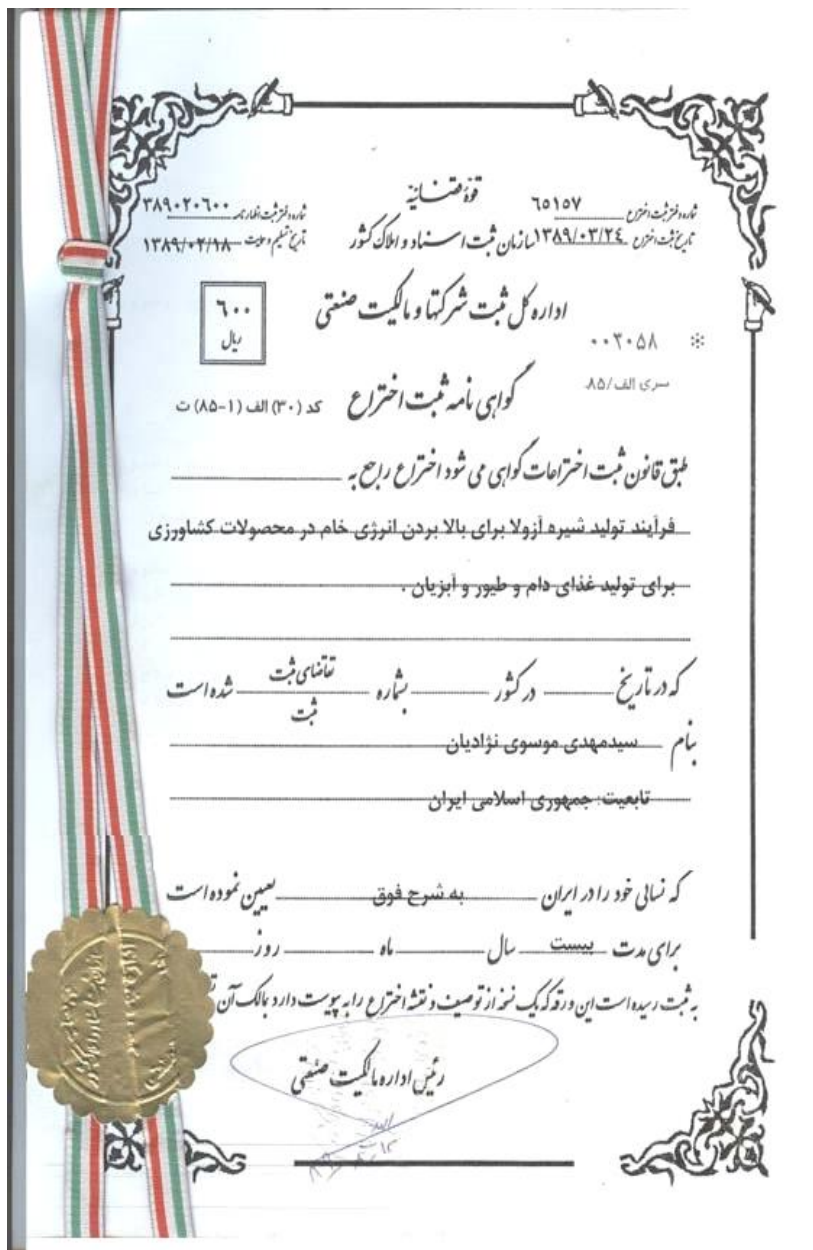 قوهٔ قضائیه
شماره دفتر ثبت اختراع ٦٥١٥٧
تاریخ ثبت اختراع ١٣٨٩/٠٣/٢٤
سازمان ثبت اسناد و املاک کشور
شماره دفتر ثبت اظهارنامه ٣٨٩٠٢٠٦٠٠
تاریخ تسلیم و روایت ١٣٨٩/٠٢/١٨
اداره کل ثبت شرکتها و مالکیت صنعتی
٦٠٠
ریال
سری الف/۸۵
گواهی نامه ثبت اختراع
کد (۳۰) الف (۱-۸۵) ت
طبق قانون ثبت اختراعات گواهی می شود اختراع راجع به
فرآیند تولید شیره آزولا برای بالا بردن انرژی خام در محصولات کشاورزی
برای تولید غذای دام و طیور و آبزیان .
که در تاریخ در کشور بشماره تقاضای ثبت شده است
ثبت
بنام سیدمهدی موسوی نژادیان
تابعیت: جمهوری اسلامی ایران
که نشانی خود را در ایران به شرح فوق تعیین نموده است
برای مدت بیست سال ماه روز
به ثبت رسیده است این ورقه که یک نسخه از توصیف و نقشه اختراع را به پیوست دارد بمالک آن
رئیس اداره مالکیت صنعتی